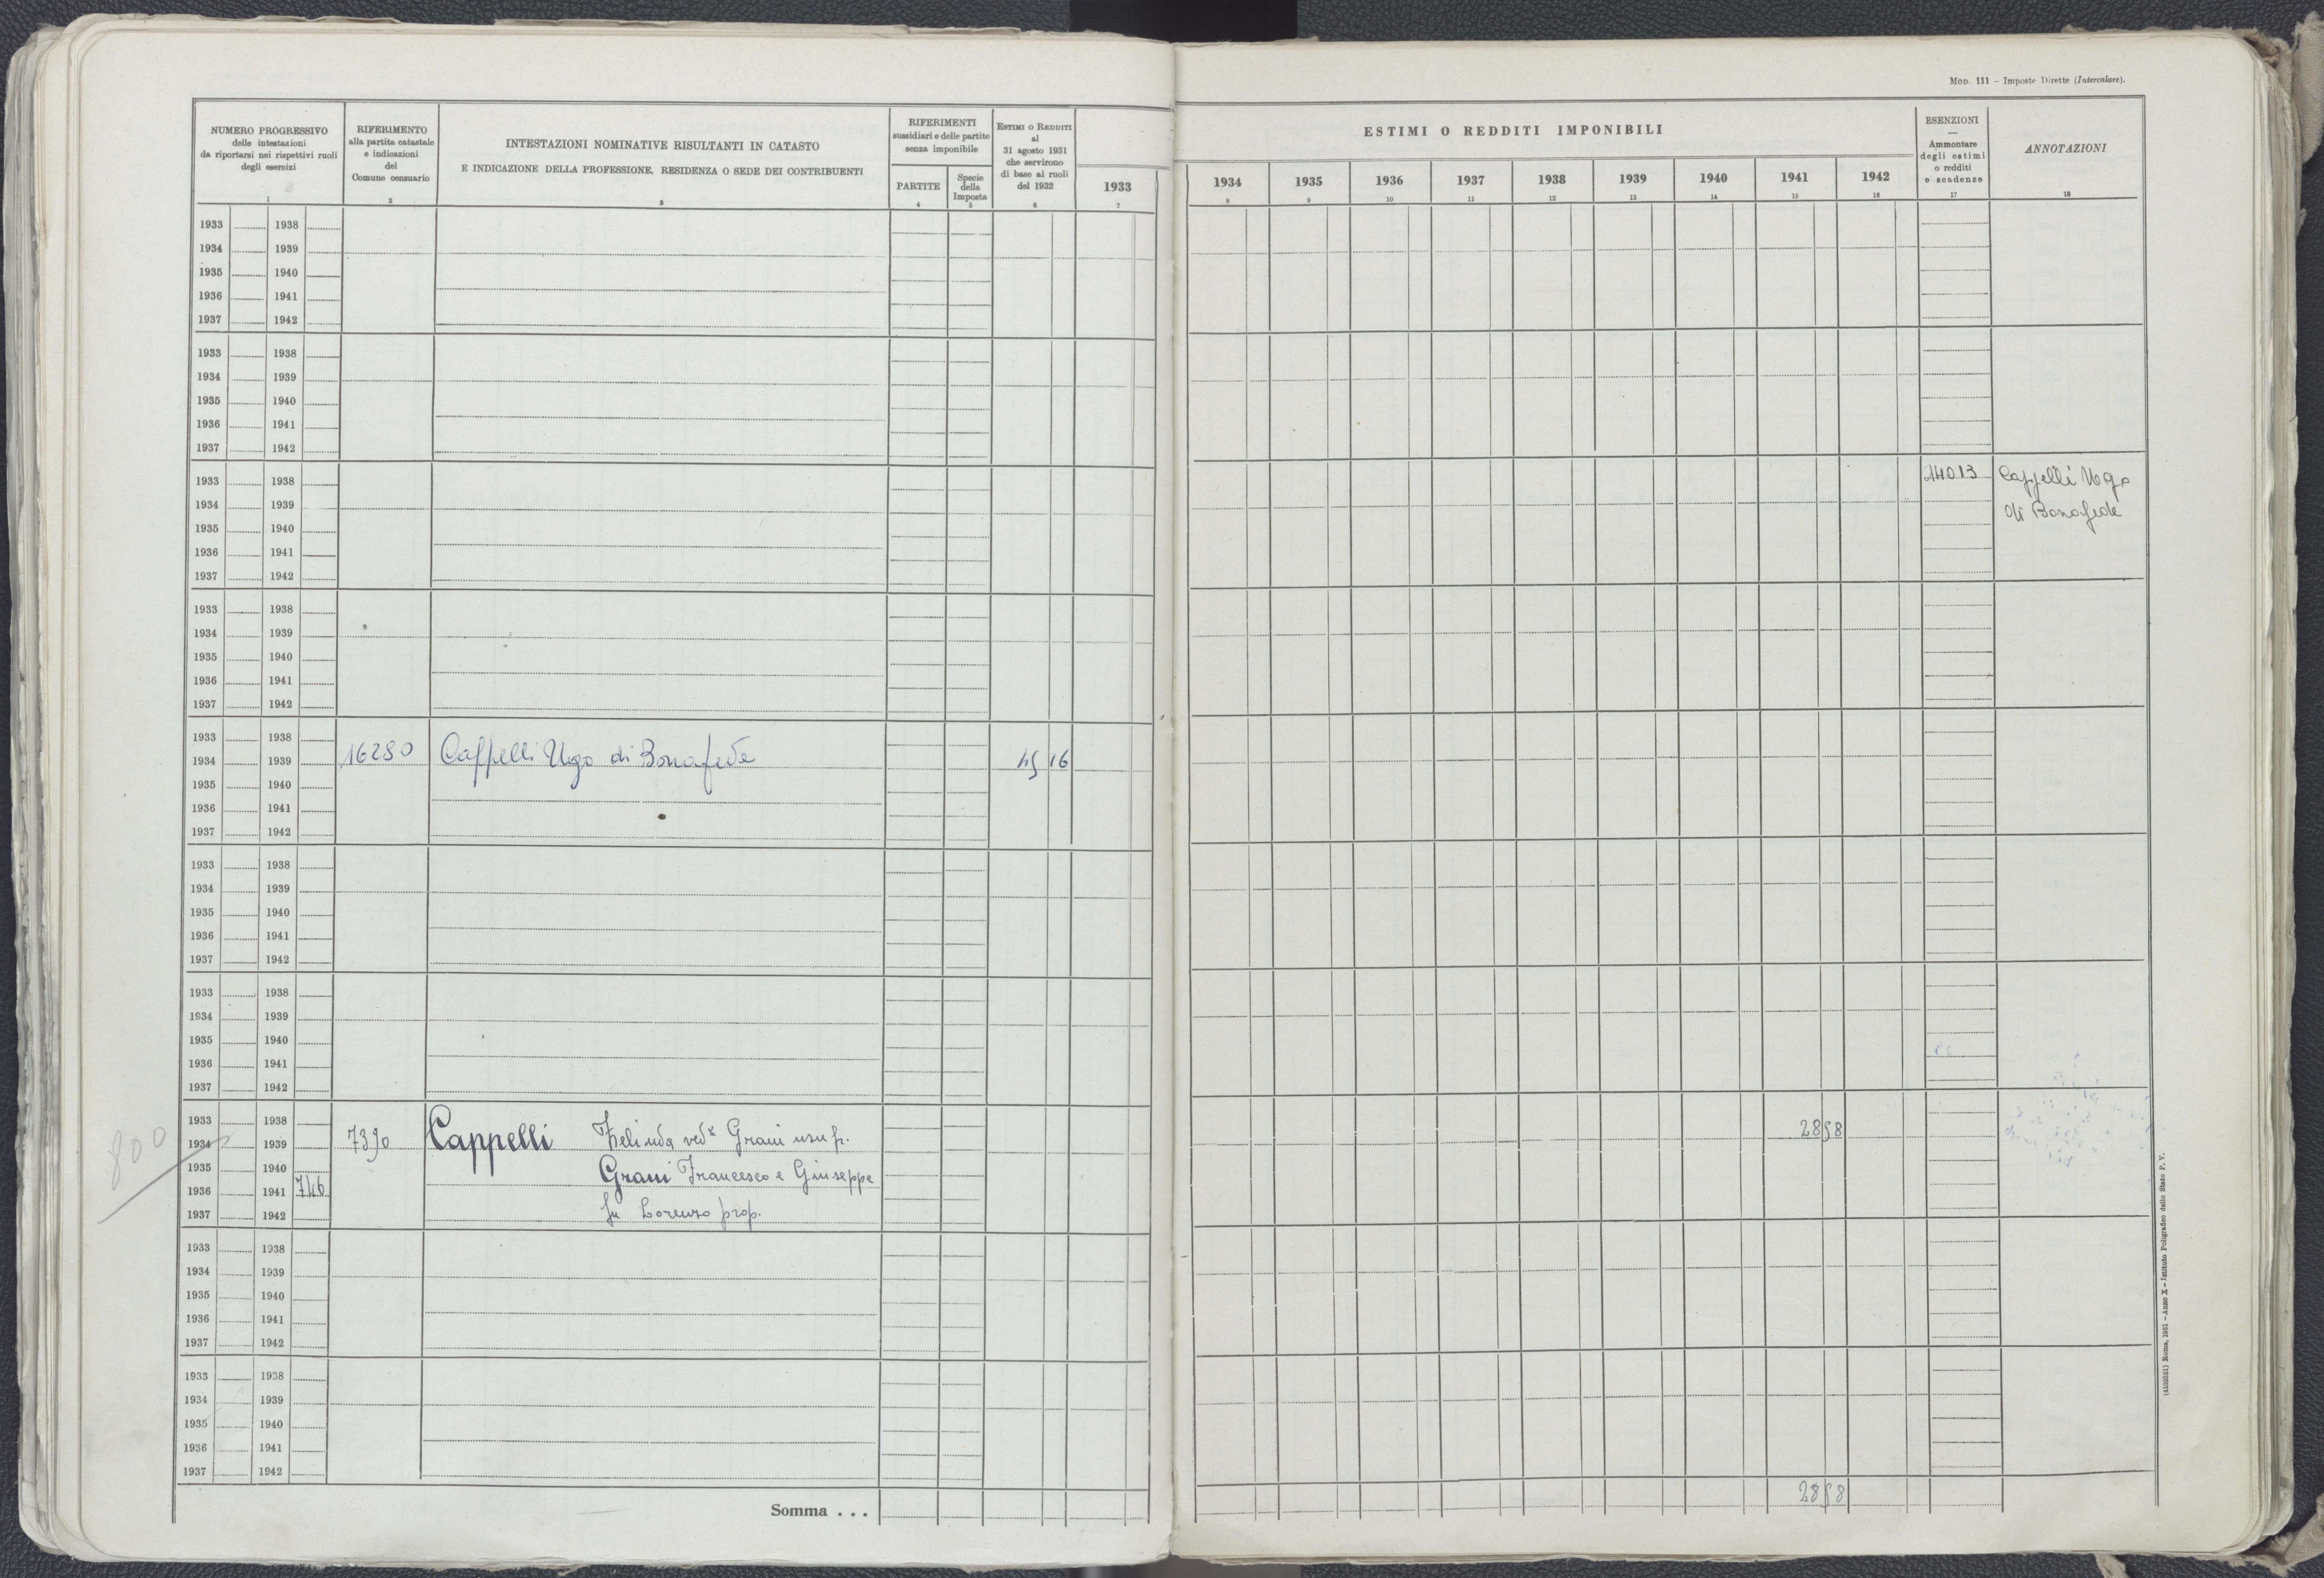 Mod. 111 – Imposte Dirette (Intercalare).
NUMERO PROGRESSIVO
delle intestazioni
da riportarsi nei rispettivi ruoli
degli esercizi
1
RIFERIMENTO
alla partita catastale
e indicazioni
del
Comune censuario
2
INTESTAZIONI NOMINATIVE RISULTANTI IN CATASTO
E INDICAZIONE DELLA PROFESSIONE, RESIDENZA O SEDE DEI CONTRIBUENTI
3
RIFERIMENTI
sussidiari e delle partite
senza imponibile
PARTITE
4
Specie
della
Imposta
5
Estimi o Redditi
al
31 agosto 1931
che servirono
di base ai ruoli
del 1932
6
1933
7
ESTIMI O REDDITI IMPONIBILI
1934 1935 1936 1937 1938 1939 1940 1941 1942
8 9 10 11 12 13 14 15 16
ESENZIONI
—
Ammontare
degli estimi
o redditi
e scadenze
17
ANNOTAZIONI
18
1933 1938
1934 1939
1935 1940
1936 1941
1937 1942
1933 1938
1934 1939
1935 1940
1936 1941
1937 1942
1933 1938 14013 Cappelli Ugo
1934 1939 di Bonafede
1935 1940
1936 1941
1937 1942
1933 1938
1934 1939
1935 1940
1936 1941
1937 1942
1933 1938
1934 1939 16280 Cappelli Ugo di Bonafede 45 16
1935 1940
1936 1941
1937 1942
1933 1938
1934 1939
1935 1940
1936 1941
1937 1942
1933 1938
1934 1939
1935 1940
1936 1941
1937 1942
1933 1938
1934 1939 7390 Cappelli Zelinda ved Grani usuf. 28 58
1935 1940
1936 1941 746 Grani Francesco e Giuseppe
1937 1942 fu Lorenzo prop.
800
1933 1938
1934 1939
1935 1940
1936 1941
1937 1942
1933 1938
1934 1939
1935 1940
1936 1941
1937 1942
Somma . . . 28 58
(4103531) Roma, 1931 – Anno X – Istituto Poligrafico dello Stato P. V.